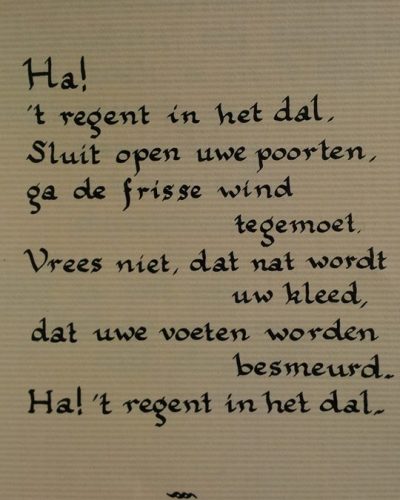 Ha!
't regent in het dal.
Sluit open uwe poorten,
ga de frisse wind
tegemoet.
Vrees niet, dat nat wordt
uw kleed,
dat uwe voeten worden
besmeurd.
Ha! 't regent in het dal.